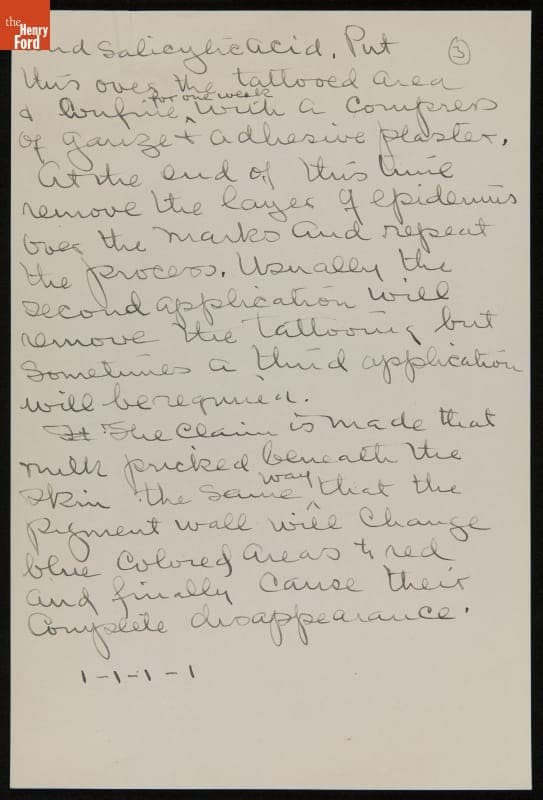 the
Henry
Ford
and Salicylic Acid. Put
3
this over the tattooed area
for one week
& confine ^ with a compress
of gauze & adhesive plaster.
At the end of this time
remove the layer of epidermis
over the marks and repeat
the process. Usually the
second application will
remove the tattooing but
sometimes a third application
will be required.
It The claim is made that
milk pricked beneath the
way
skin the same ^ that the
pigment wall will change
blue colored areas to red
and finally cause their
complete disappearance.
1-1-1-1